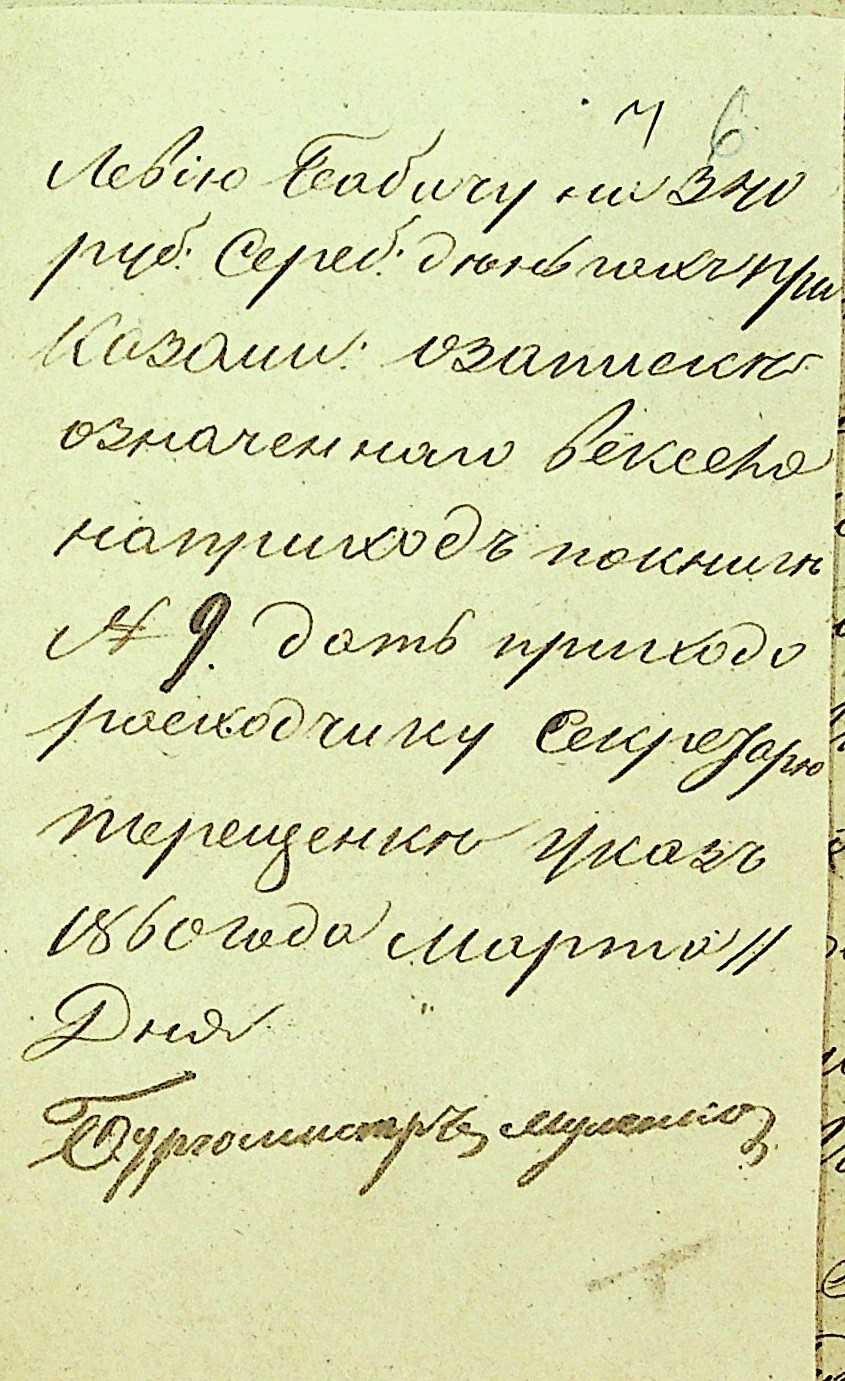 7 6
Левію Бабичу на 340
руб. Сереб. дѣньгахъ При
Казали: озапискѣ
означеннаго векселя
наприходъ покнигѣ
№ 9. дать приходо
росходчику Секретарю
терещенкѣ указъ
1860 года Марта 11
Дня
Бургомистръ